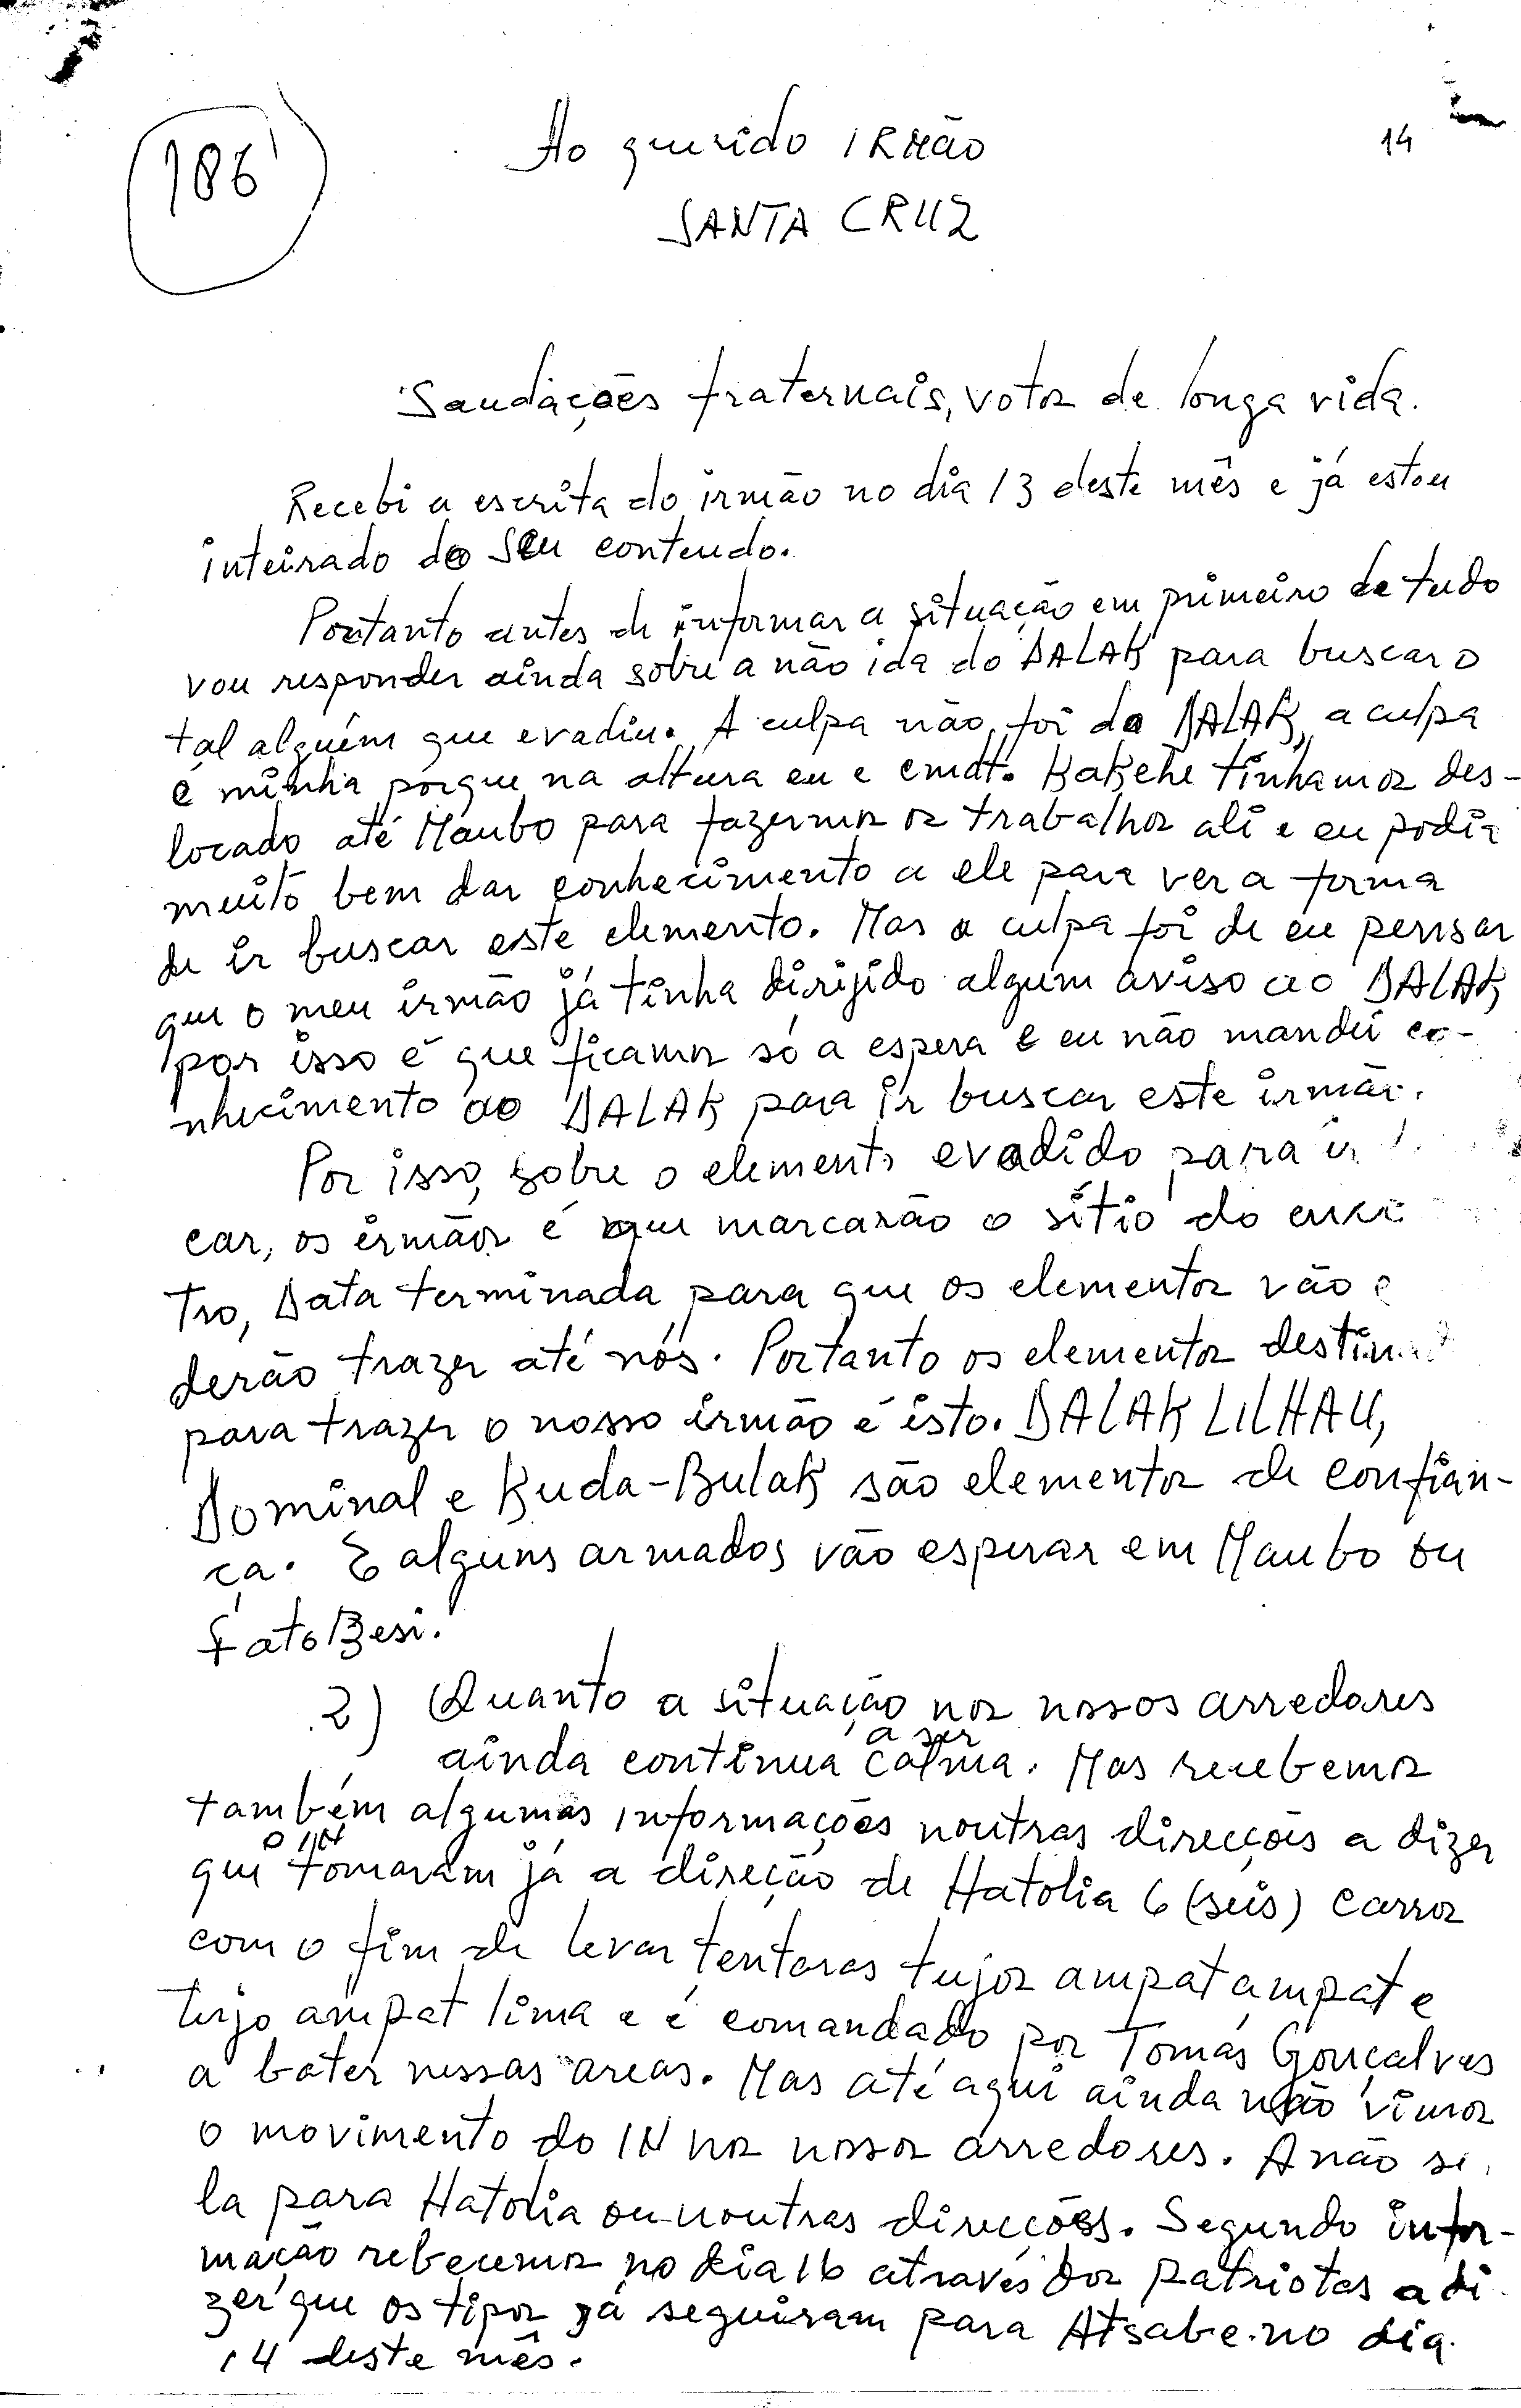 186
14
Ao querido IRMÃO
SANTA CRUZ
Saudações fraternais, votos de longa vida.
Recebi a escrita do irmão no dia 13 deste mês e já estou
inteirado do seu conteudo.
Portanto antes de informar a situação em primeiro de tudo
vou responder ainda sobre a não ida do DALAK para buscar o
tal alguém que evadiu. A culpa não foi do DALAK, a culpa
é minha porque na altura eu e cmdt. Kakehe tinhamos des-
locado até Maubo para fazermos os trabalhos ali e eu podia
muito bem dar conhecimento a ele para ver a forma
de ir buscar este elemento. Mas a culpa foi de eu pensar
que o meu irmão já tinha dirijido algum aviso ao DALAK,
por isso é que ficamos só a espera e eu não mandei co-
nhecimento ao DALAK para ir buscar este irmão.
Por isso, sobre o elemento evadido para ir
car, os irmãos é que marcarão o sítio do
tro, Data terminada para que os elementos vão
derão trazer até nós. Portanto os elementos
para trazer o nosso irmão é isto. DALAK LILHAU,
Dominal e Kuda-Bulak são elementos de confian-
ça. E alguns armados vão esperar em Maubo ou
FatoBesi.
2) Quanto a situação nos nossos arredores
ainda continua a ser calma. Mas recebemos
também algumas informações noutras direcções a dizer
que o IN tomaram já a direção de Hatolia 6 (seis) carros
com o fim de levar tentaras tujos ampat ampat e
tujo ampat lima e é comandado por Tomás Gonçalves
a bater nessas areas. Mas até aqui ainda não vimos
o movimento do IN nos nossos arredores. A não se
la para Hatolia ou noutras direcções. Segundo infor-
mação rebecemos no dia 16 através dos patriotas a di
zer que os tipos já seguiram para Atsabe no dia
14 deste mês.